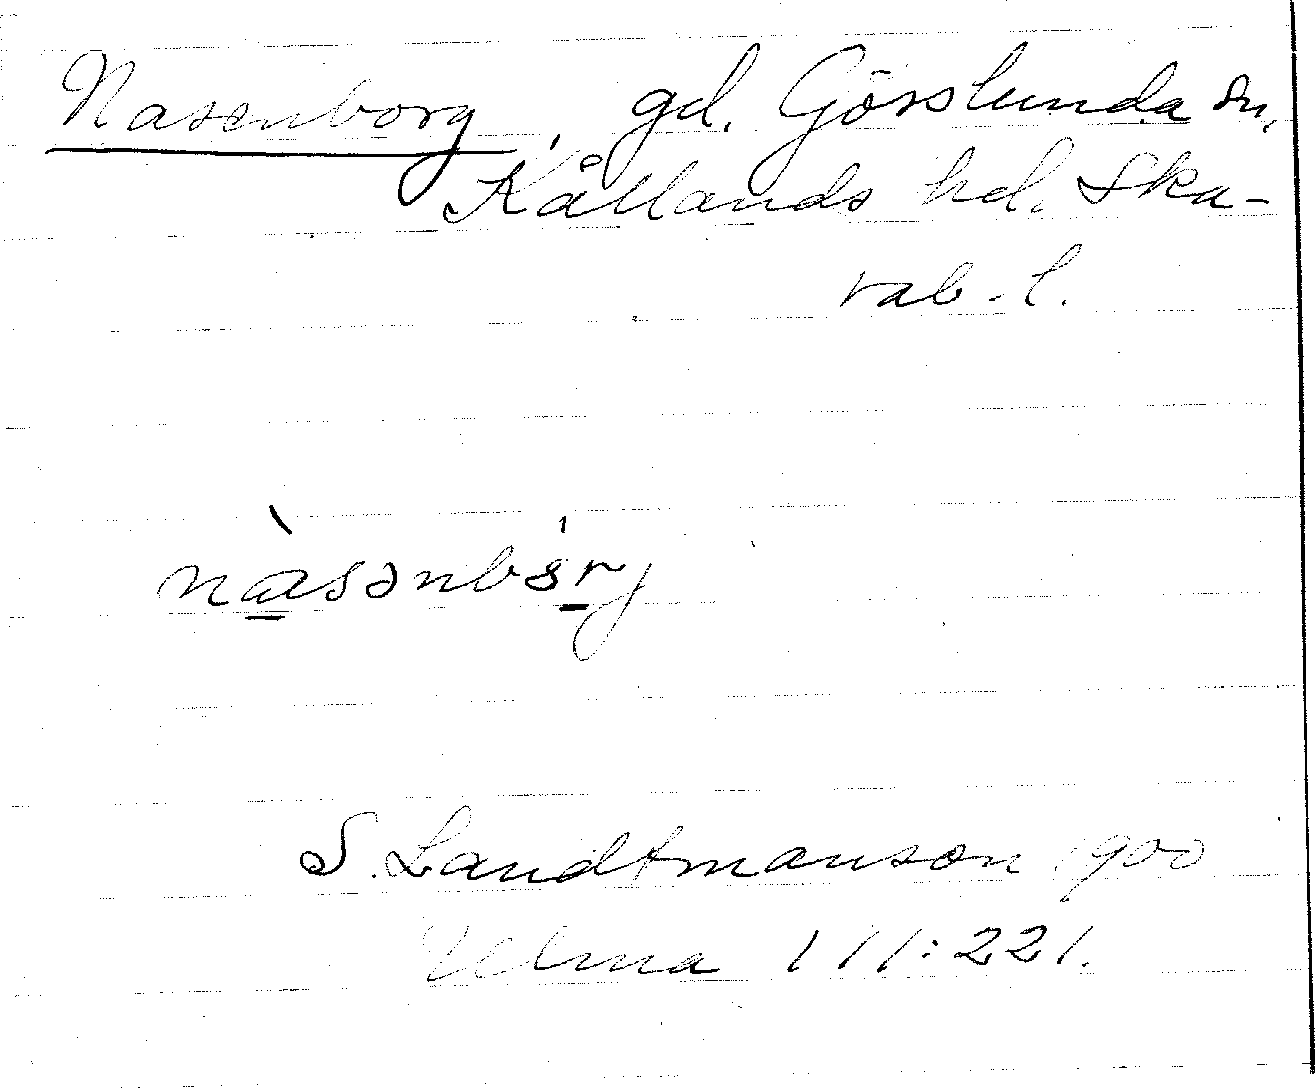 Nasenborg, gd. Görslunda sn,
Kållands hd. Ska-
rab. l.
nàsənbɵ́rj
S. Landtmanson 1900
Ulma 111:221.